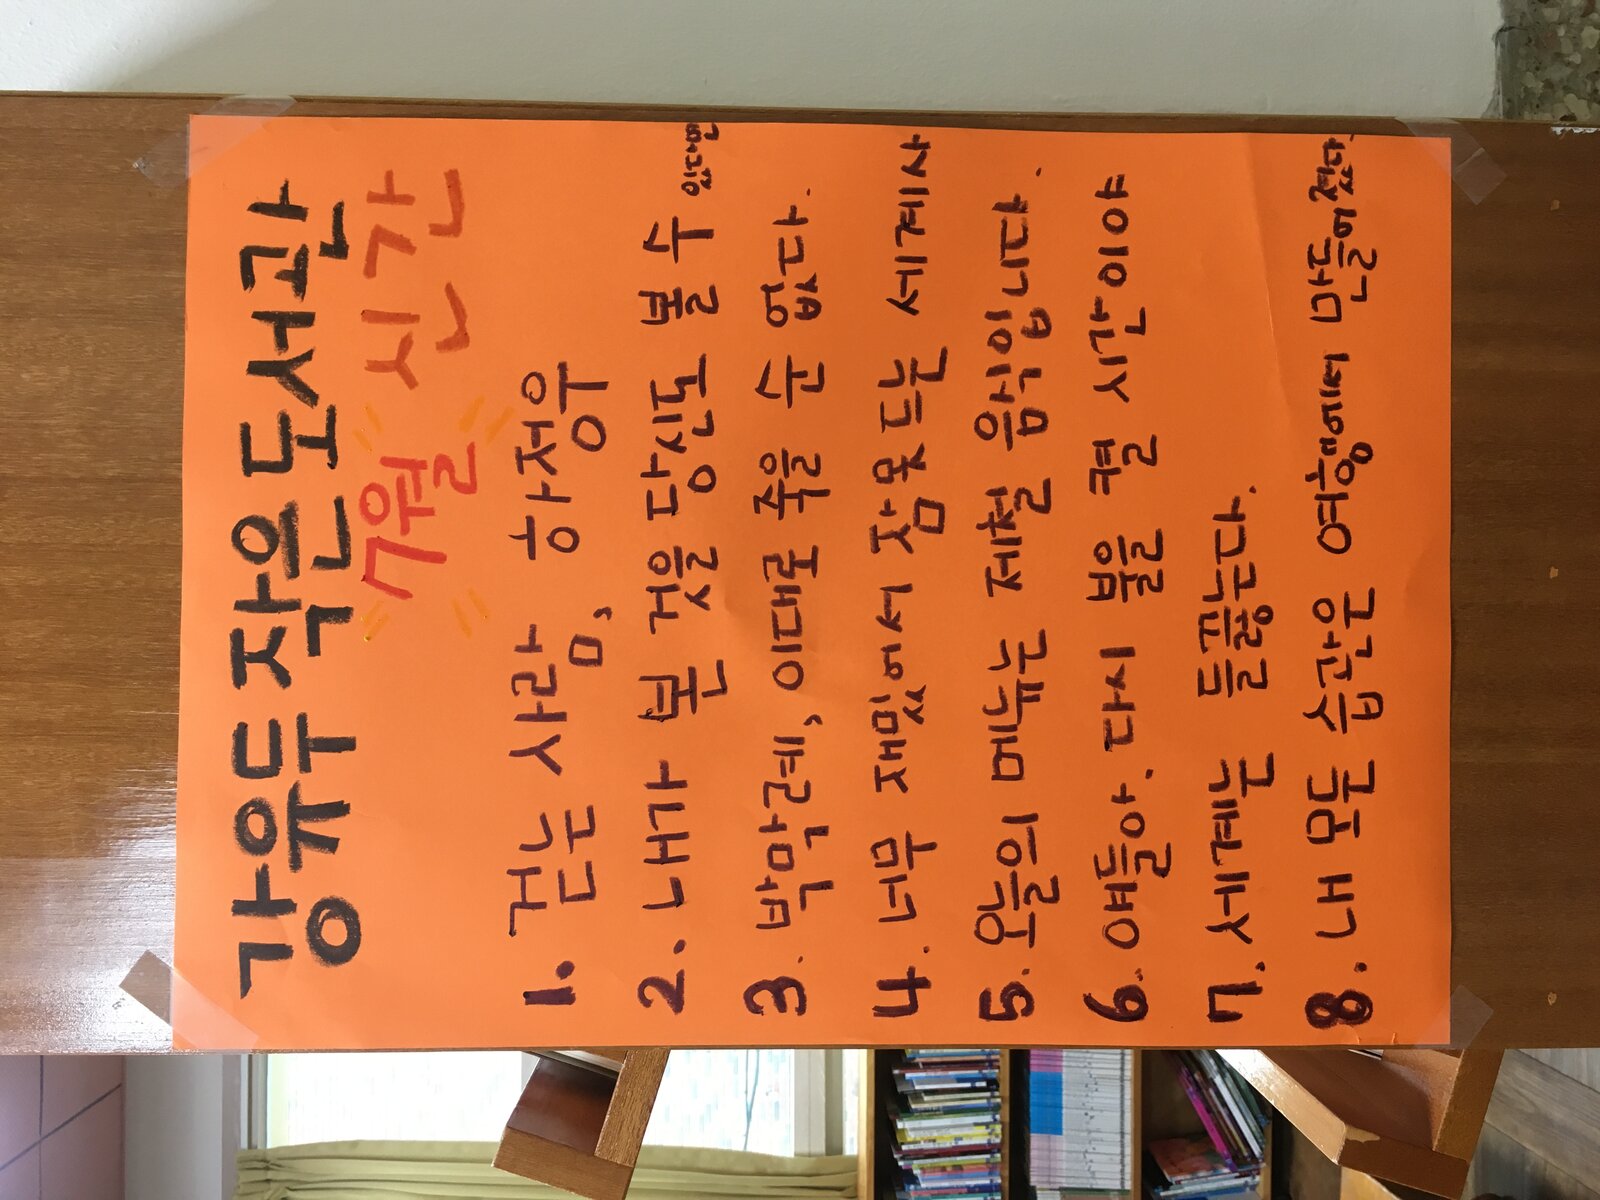 강유두 작은도서관
7월 신간
1. 걷는 사람, 하정우
2. 내가 본 것을 당신도 볼 수 있다면
3. 박막례, 이대로 죽을 순 없다.
4. 너무 재밌어서 잠 못 드는 세계사
5. 오늘의 메뉴는 제철 음식입니다.
6. 애들아. 다시 불을 켤 시간이야
7. 세계는 들끓는다.
8. 내 모든 습관은 여행에서 만들어졌다.